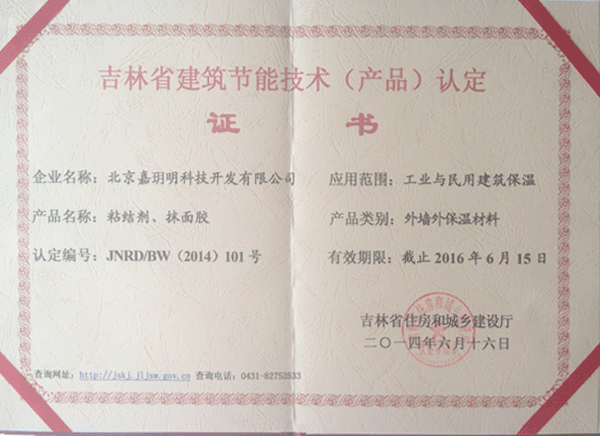 吉林省建筑节能技术（产品）认定
证 书
企业名称：北京嘉玥明科技开发有限公司
产品名称：粘结剂、抹面胶
认定编号：JNRD/BW（2014）101 号
应用范围：工业与民用建筑保温
产品类别：外墙外保温材料
有效期限：截止 2016 年 6 月 15 日
吉林省住房和城乡建设厅
二〇一四年六月十六日
查询网址：http://jskj.jljsw.gov.cn 查询电话：0431-82752533